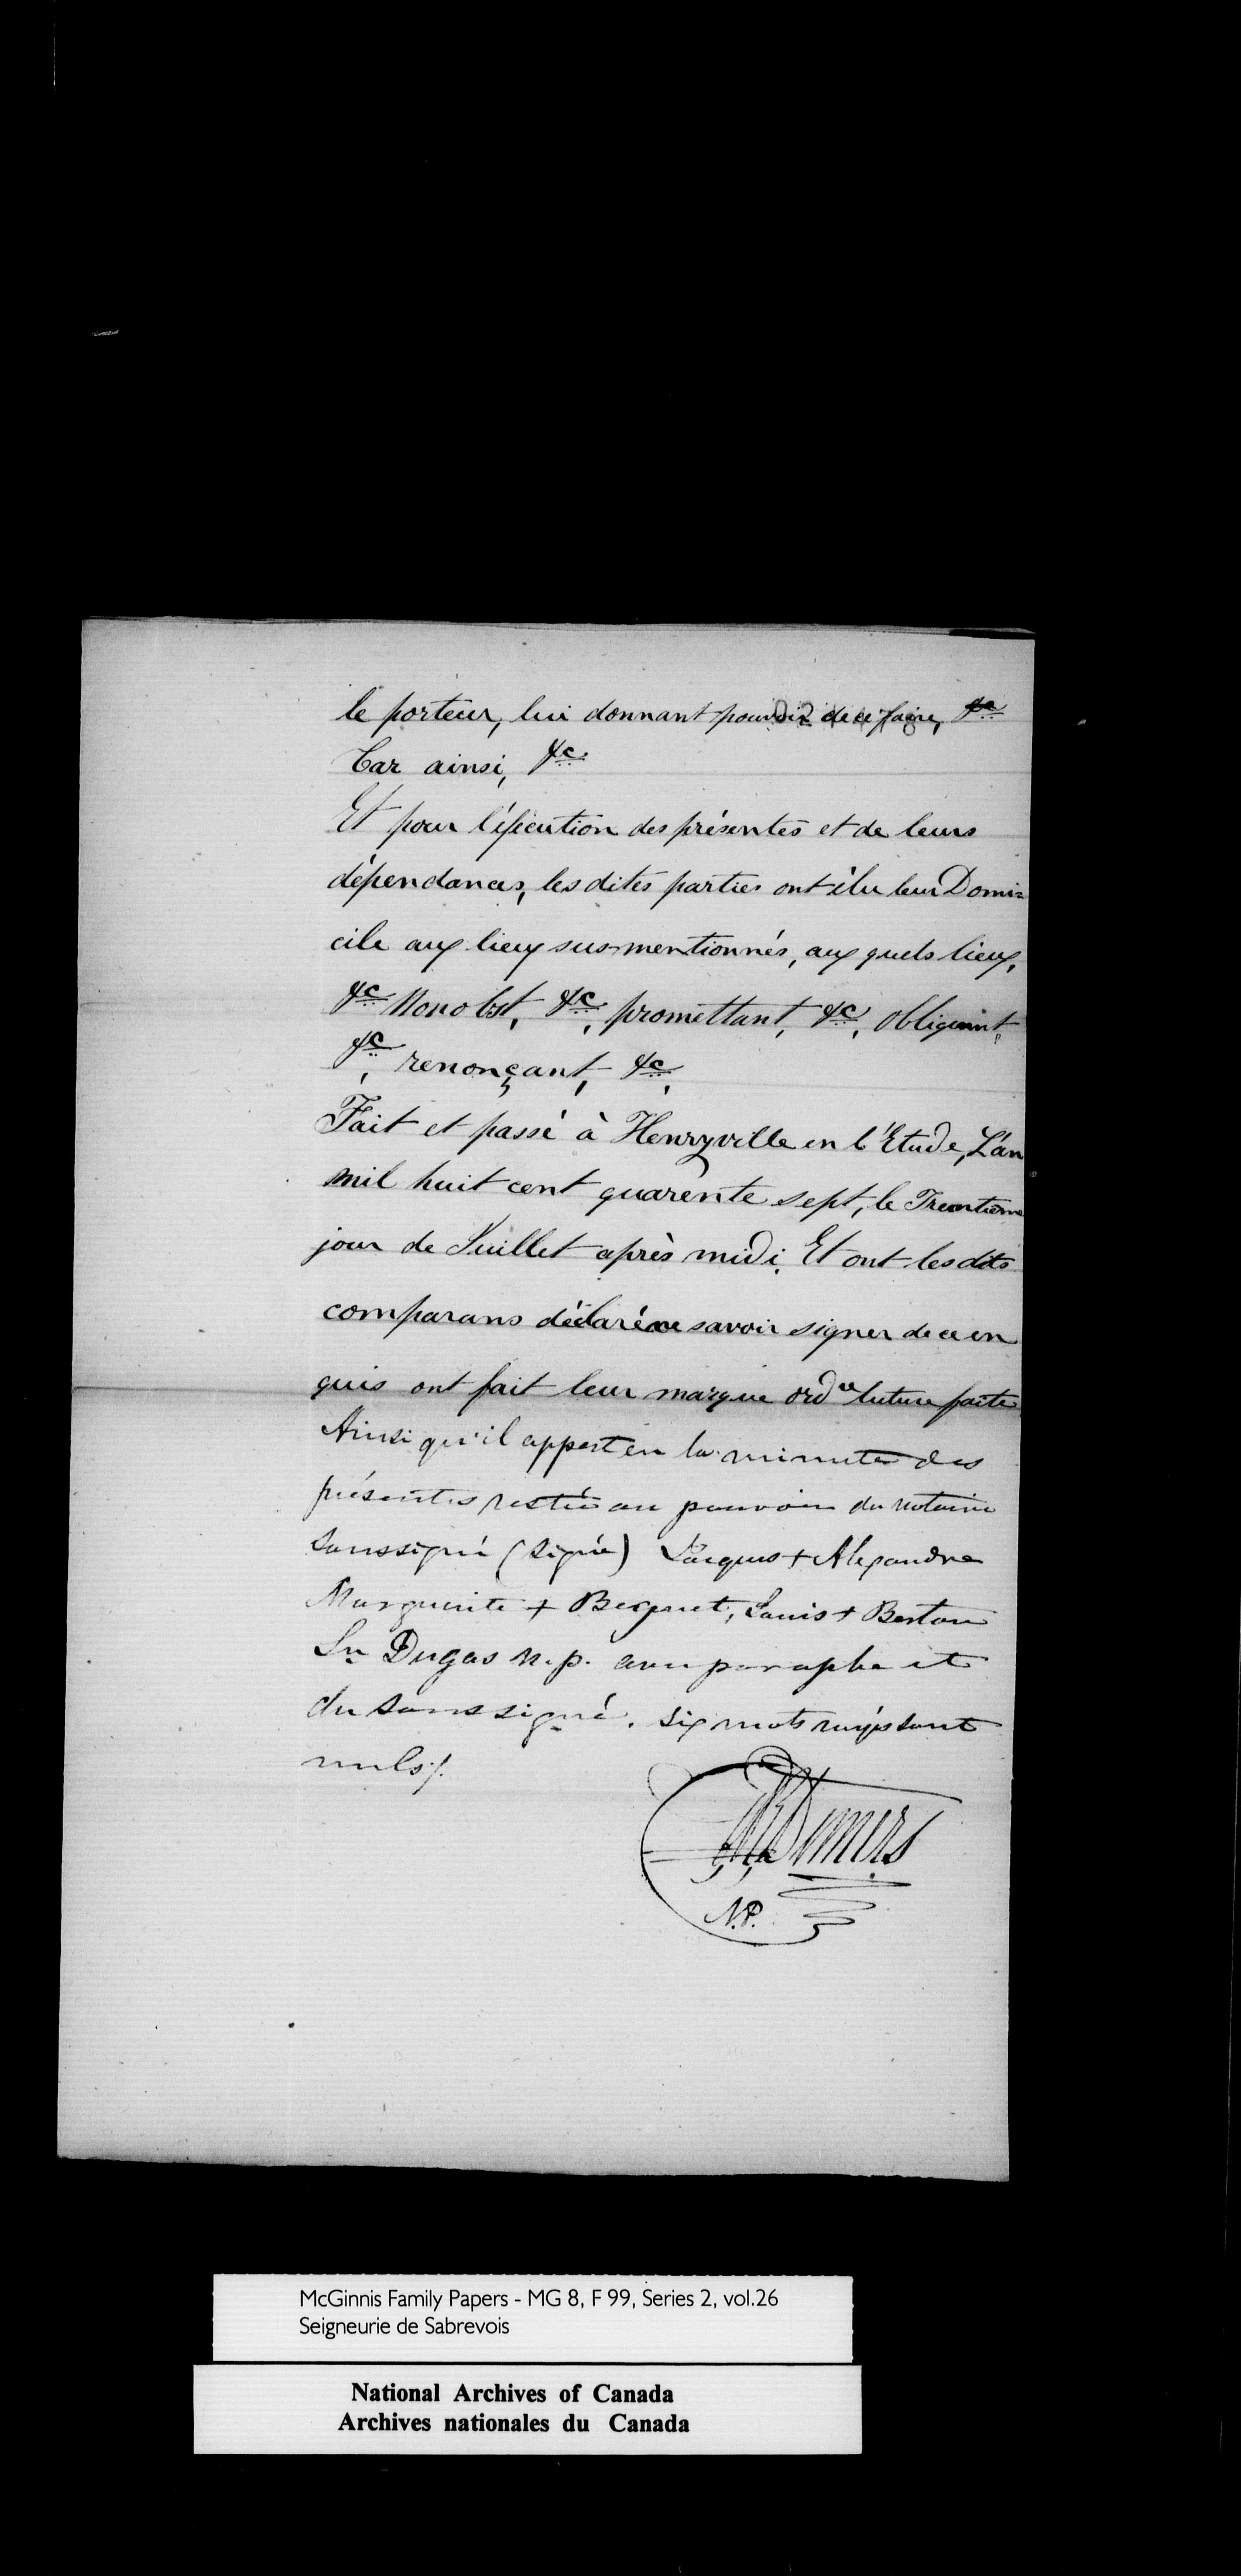 le porteur, lui donnant pouvoir de ce faire, &c
Car ainsi, &c
Et pour l'éxécution des présentes et de leurs
dépendances, les dites parties ont élu leur Domi=
cile aux lieux susmentionnés, aux quels lieux,
&c Nonobst, &c, promettant, &c, obligeant,
&c, renonçant, &c,
Fait et passé à Henryville en l'Etude, L'an
mil huit cent quarente sept, le Trentieme
jour de Juillet après midi, Et ont les dits
comparans déclaré ne savoir signer de ce en
quis ont fait leur marque ordre lecture faite
Ainsi qu'il appert en la minute des
présentes restée au pouvoir du notaire
Soussigné (Signé) Jacques + Alexandre
Marguerite + Louis +
Ln Dugas N.p. avec paraphe et
du soussigné. Six mots rayés sont
nuls /.
Demers
N.P.
McGinnis Family Papers - MG 8, F 99, Series 2, vol.26
Seigneurie de Sabrevois
National Archives of Canada
Archives nationales du Canada